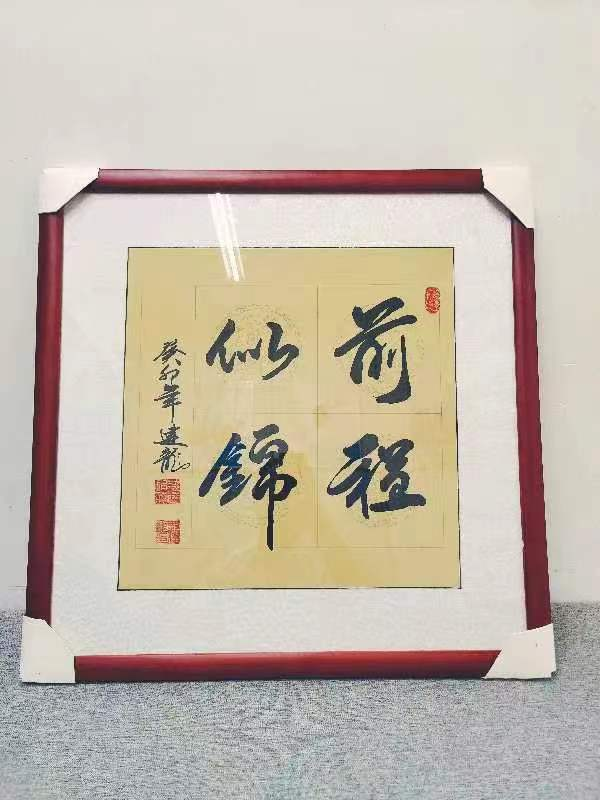 前程
似錦
癸卯年建龍